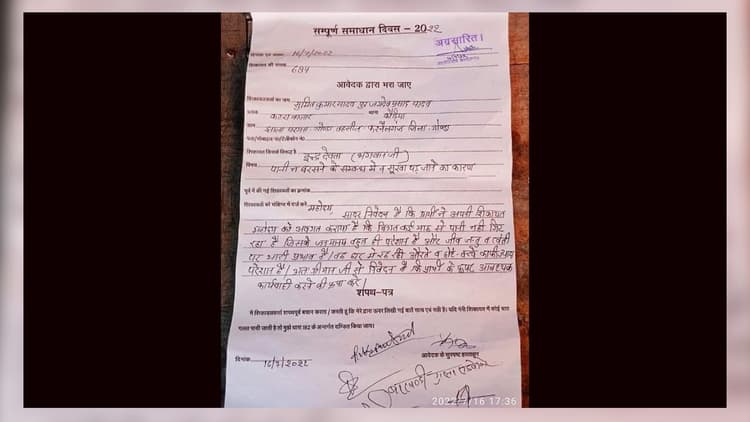 सम्पूर्ण समाधान दिवस - 2022
अग्रसारित।
16/7/2022
शिकायत की संख्या 684
आवेदक द्वारा भरा जाए
शिकायतकर्ता का नाम सुमित कुमार यादव पुत्र यादव
थाना कौड़िया
परगना गोण्डा तहसील करनैलगंज जिला गोण्डा
शिकायत जिसके विरूद्ध है इन्द्र देवता (भगवान जी)
विषय पानी न बरसने के सम्बन्ध में व सूखा पड़ जाने का कारण
पूर्व में की गई शिकायतों का क्रमांक
महोदय,
सादर निवेदन है कि प्रार्थी ने अपनी शिकायत
महोदय को अवगत कराया है कि विगत कई माह से पानी नहीं गिर
रहा है जिससे जनमानस बहुत ही परेशान है और जीव जन्तु व खेती
पर भारी प्रभाव है। घर में रह रही औरतें व छोटे-बच्चे काफी
परेशान है। अतः श्रीमान जी से निवेदन है कि आवश्यक
कार्यवाही करने की कृपा करें।
शपथ-पत्र
मैं शिकायतकर्ता शपथपूर्व बयान करता / करती हूं कि मेरे द्वारा ऊपर लिखी गई बातें सत्य एवं सही है। यदि मेरी शिकायत में कोई बात
गलत पायी जाती है तो मुझे धारा 182 के अन्तर्गत दण्डित किया जाय।
दिनांक 16/7/2022
आवेदक के हस्ताक्षर
2022/7/16 17:36